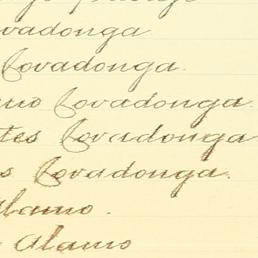 ovadonga
Covadonga.
Covadonga.
tes Covadonga
s Covadonga.
Alamo.
Alamo